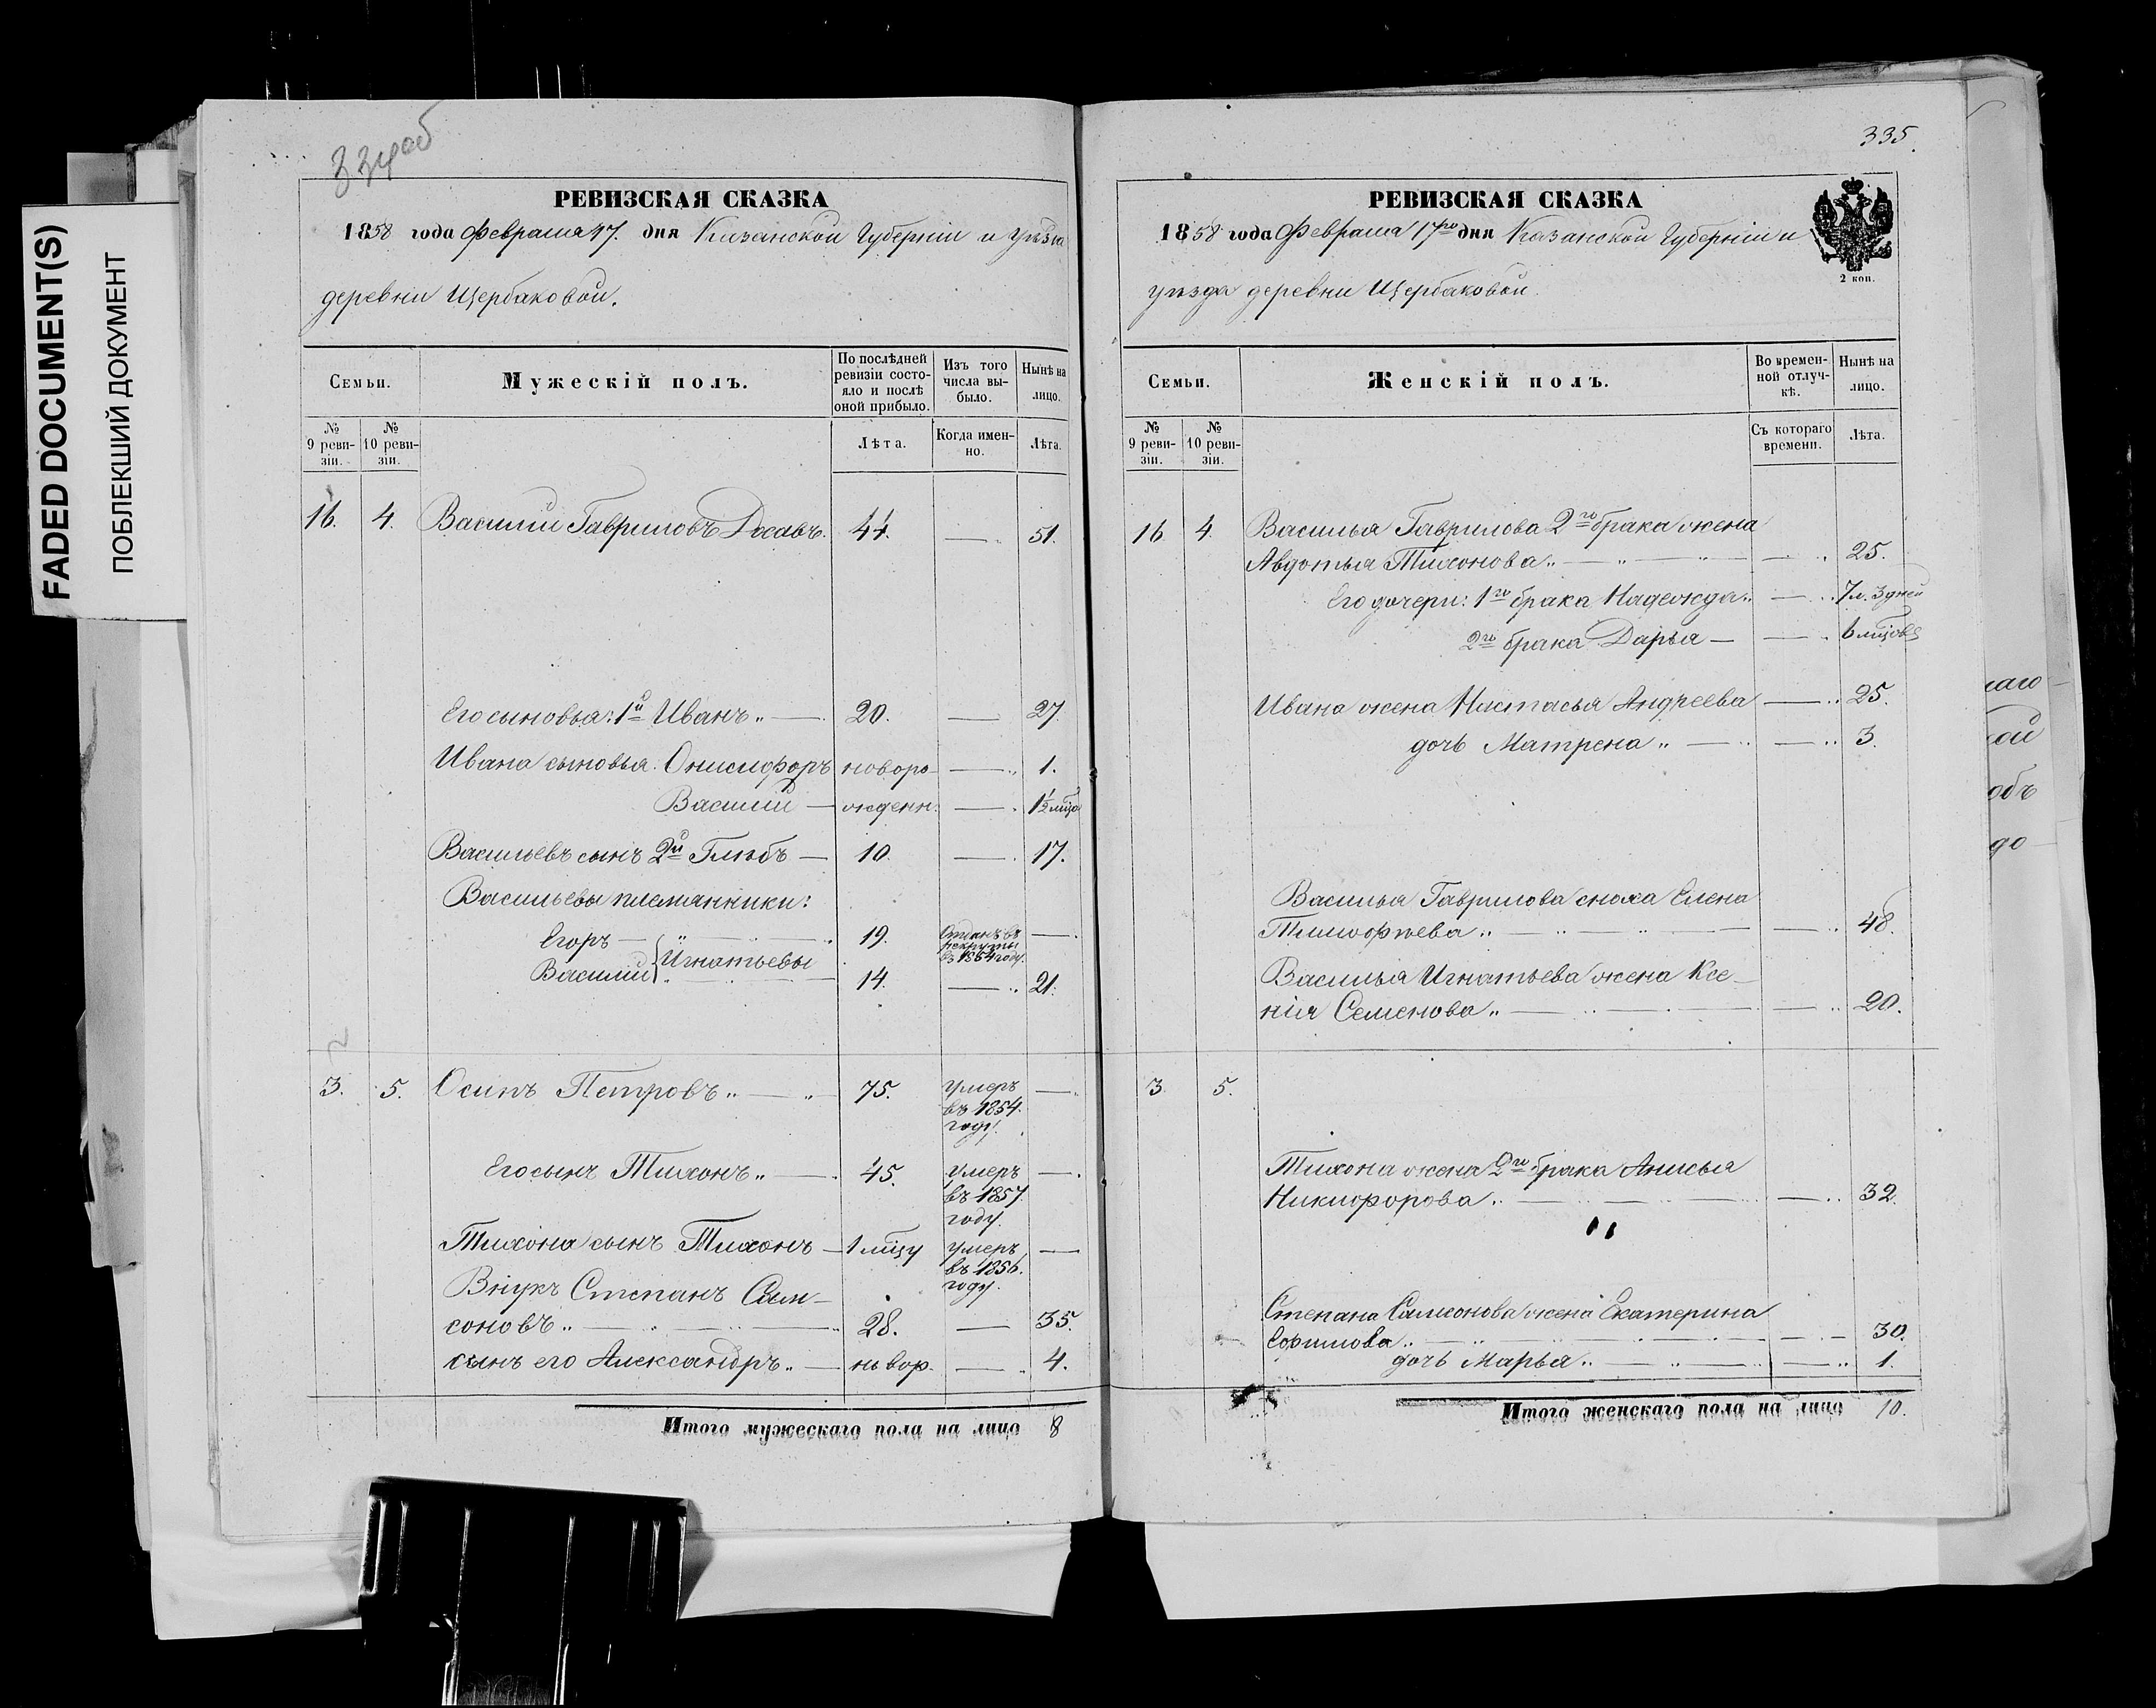 FADED DOCUMENT(S)
ПОБЛЕКШИЙ ДОКУМЕНТ
334об
РЕВИЗСКАЯ СКАЗКА
1858 года Февраля 17. дня Казанской Губерніи и Уѣзда
деревни Щербаковой.
Семьи.
Мужескій полъ.
По послѣдней ревизіи состояло и послѣ оной прибыло.
Изъ того числа выбыло.
Нынѣ на лицо.
№ 9 ревизіи.
№ 10 ревизіи.
Лѣта.
Когда именно.
Лѣта.
16. 4. Василій Гавриловъ 44. — 51.
Его сыновья: 1й Иванъ „ — 20. — 27
Ивана сыновья. Онисифоръ новоро- — 1.
Василій — жденн. — 1½ мцо
Васильевъ сынъ 2й Глѣбъ — 10. — 17.
Васильевы племянники:
Егоръ — 19. Отданъ въ рекруты въ 1854 году. —
Игнатьевы
Василій 14. — 21.
3. 5. Осипъ Петровъ „ — „ 75. умеръ въ 1854. году. —
Его сынъ Тихонъ „ — 45. умеръ въ 1857. году. —
Тихона сынъ Тихонъ — 1 мцу умеръ въ 1856. году. —
Внукъ Степанъ Сам-
соновъ „ — 28. — 35.
сынъ его Александръ „ — новор. — 4.
Итого мужескаго пола на лицо 8
335.
РЕВИЗСКАЯ СКАЗКА
1858 года Февраля 17го дня Казанской Губерніи и
уѣзда деревни Щербаковой.
2 коп.
Семьи.
Женскій полъ.
Во временной отлучкѣ.
Нынѣ на лицо.
№ 9 ревизіи.
№ 10 ревизіи.
Съ котораго времени.
Лѣта.
16 4. Василья Гаврилова 2го брака жена
Авдотья Тихонова „ — „ — 25.
Его дочери: 1го брака Надежда „ — 7 л. 3 дней
2го брака Дарья — — 6 мцовъ
Ивана жена Настасья Андреева — 25.
дочь Матрена „ — — 3.
Василья Гаврилова сноха Елена
Тимофѣева „ — — 48.
Василья Игнатьева жена Ксе-
нія Семенова „ — — 20.
3 5.
Тихона жена 2го брака Анисья
Никифорова „ — — 32.
Степана Самсонова жена Екатерина
Ефимова „ — — 30.
дочь Марья „ — „ — 1.
Итого женскаго пола на лицо 10.